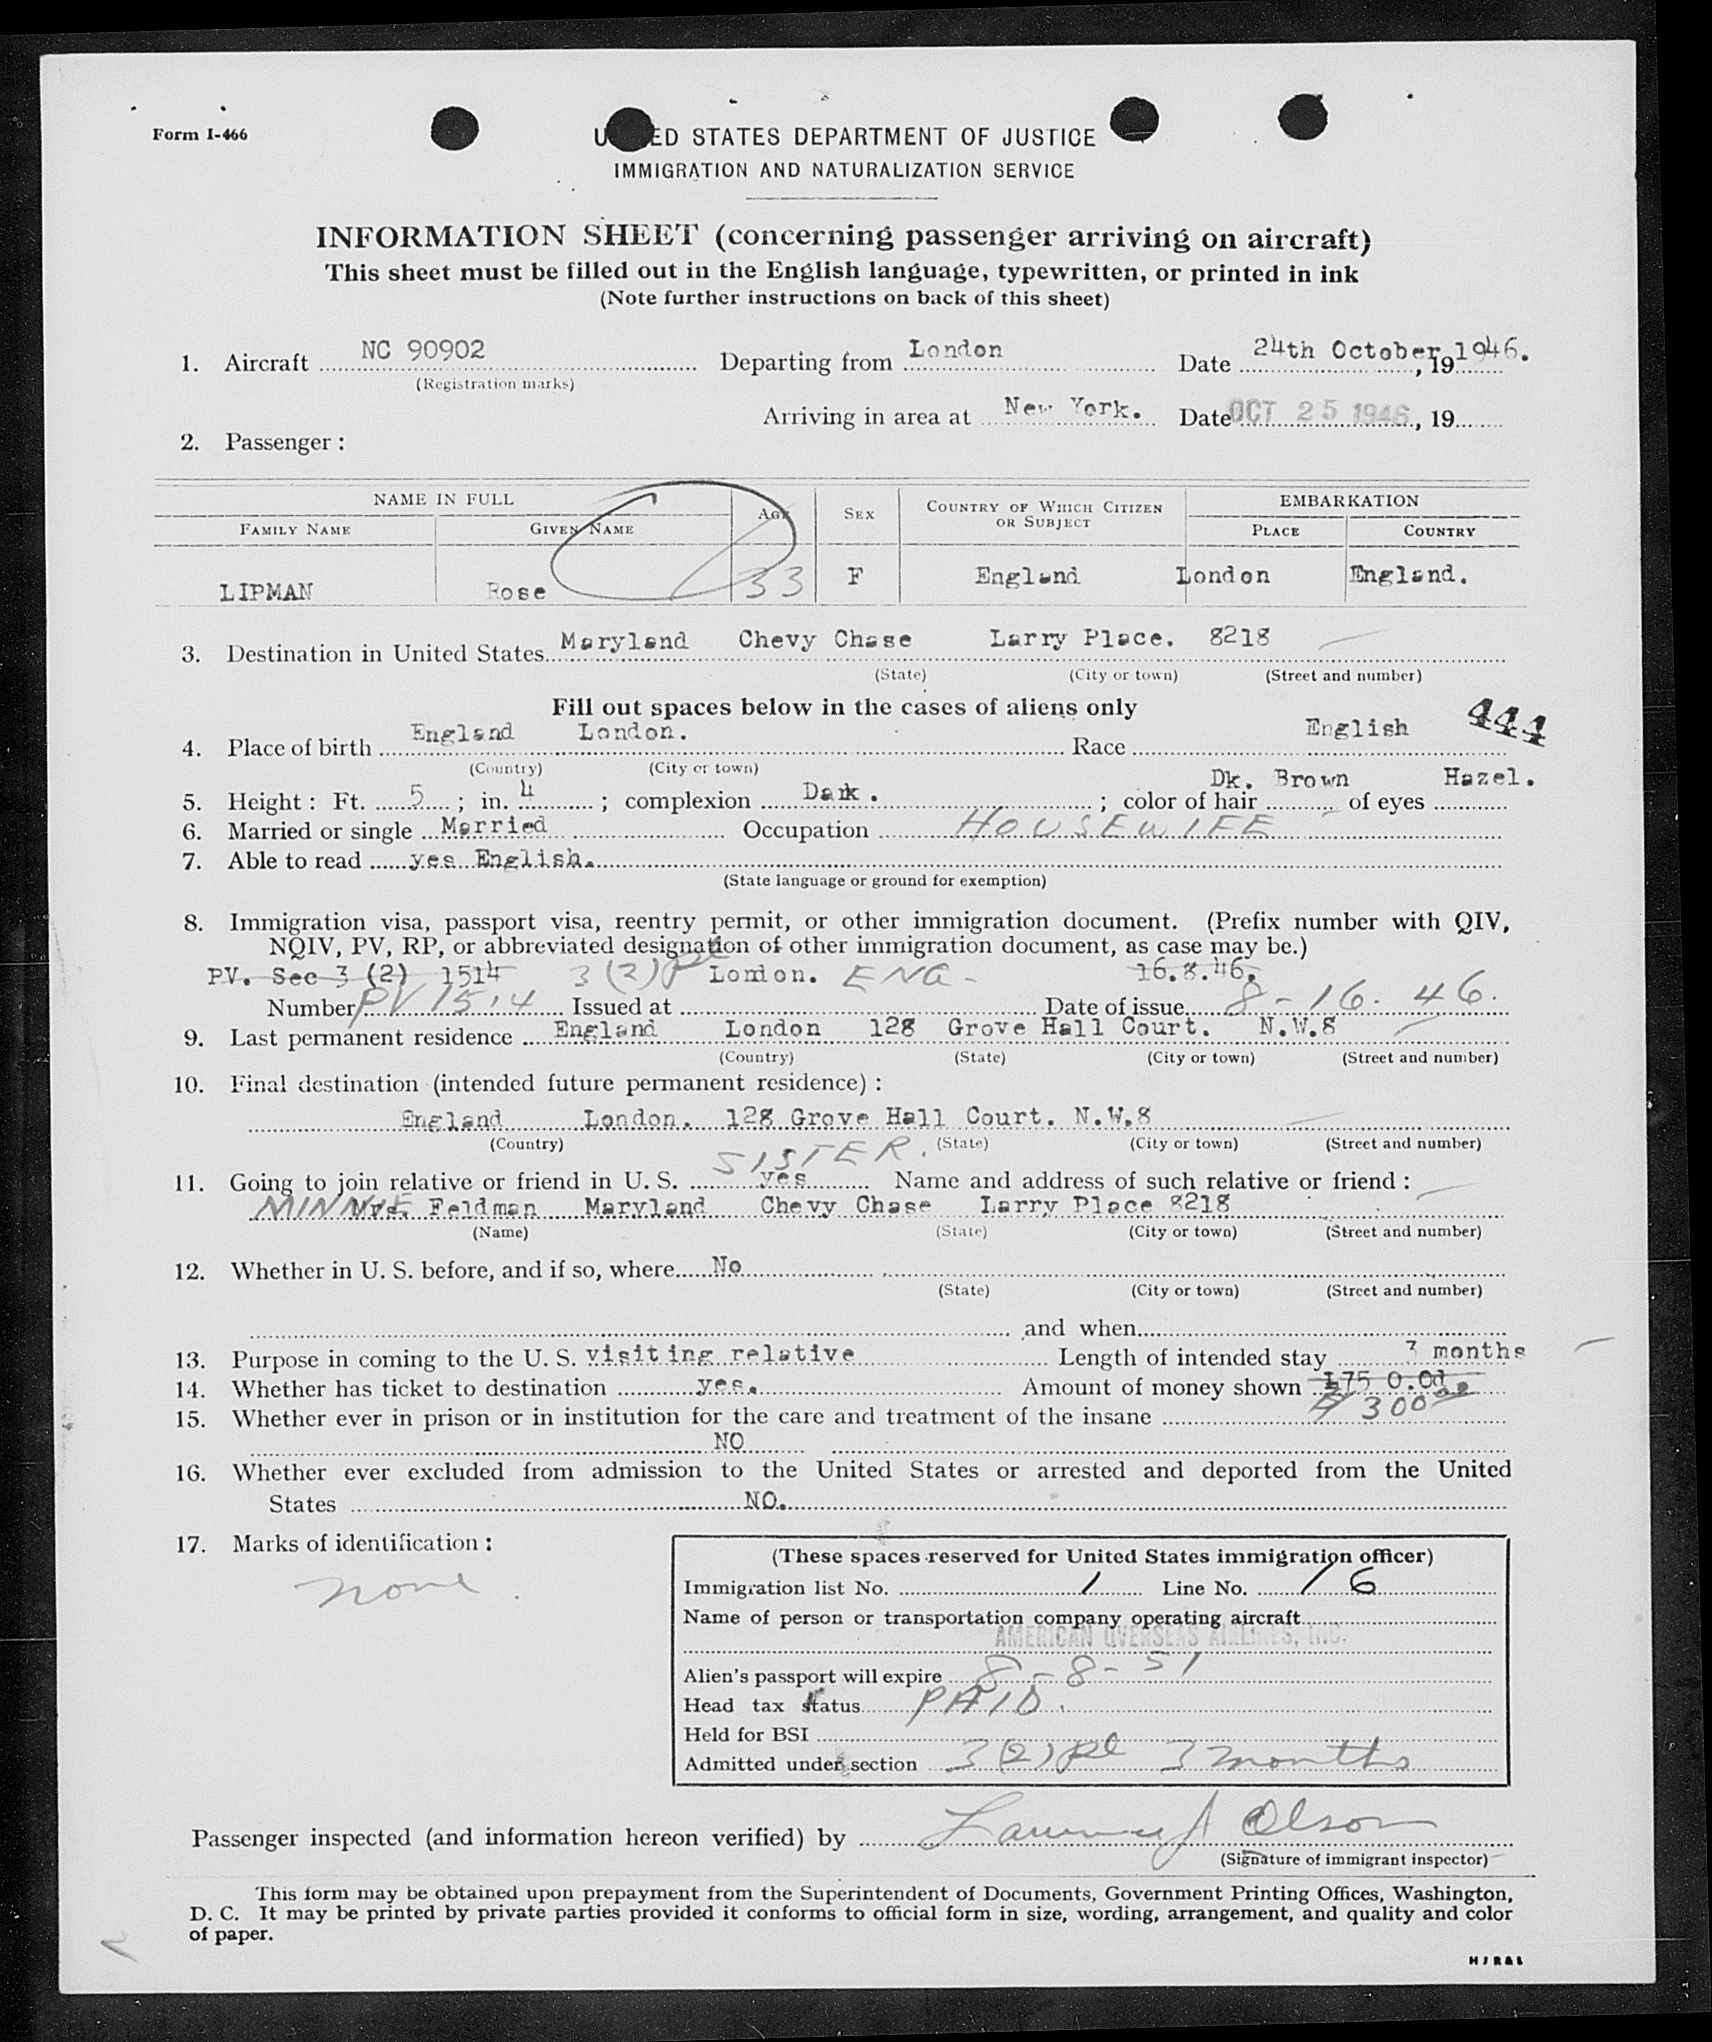 Form I-466
U ED STATES DEPARTMENT OF JUSTICE
IMMIGRATION AND NATURALIZATION SERVICE
INFORMATION SHEET (concerning passenger arriving on aircraft)
This sheet must be filled out in the English language, typewritten, or printed in ink
(Note further instructions on back of this sheet)
1. Aircraft NC 90902 Departing from London Date 24th October, 19 1946.
(Registration marks)
Arriving in area at New York. Date OCT 25 1946, 19
2. Passenger:
NAME IN FULL AGE SEX COUNTRY OF WHICH CITIZEN OR SUBJECT EMBARKATION
FAMILY NAME GIVEN NAME PLACE COUNTRY
LIPMAN Rose 33 F England London England.
3. Destination in United States Maryland Chevy Chase Larry Place. 8218
(State) (City or town) (Street and number)
Fill out spaces below in the cases of aliens only
444
4. Place of birth England London. Race English
(Country) (City or town)
5. Height: Ft. 5; in. 4; complexion Dark.; color of hair Dk. Brown of eyes Hazel.
6. Married or single Married Occupation HOUSEWIFE
7. Able to read yes English.
(State language or ground for exemption)
8. Immigration visa, passport visa, reentry permit, or other immigration document. (Prefix number with QIV,
NQIV, PV, RP, or abbreviated designation of other immigration document, as case may be.)
PV. Sec 3 (2) 1514 3(2)Pl London. ENG- 16.8.46.
Number PV 1514 Issued at Date of issue 8-16-46.
9. Last permanent residence England London 128 Grove Hall Court. N.W.8
(Country) (State) (City or town) (Street and number)
10. Final destination (intended future permanent residence):
England London. 128 Grove Hall Court. N.W.8
(Country) (State) (City or town) (Street and number)
SISTER.
11. Going to join relative or friend in U. S. yes Name and address of such relative or friend:
MINNIE Mrs. Feldman Maryland Chevy Chase Larry Place 8218
(Name) (State) (City or town) (Street and number)
12. Whether in U. S. before, and if so, where No
(State) (City or town) (Street and number)
and when
13. Purpose in coming to the U. S. visiting relative Length of intended stay 3 months
14. Whether has ticket to destination yes. Amount of money shown £75 0.0d.
15. Whether ever in prison or in institution for the care and treatment of the insane $ 300
NO
16. Whether ever excluded from admission to the United States or arrested and deported from the United
States NO.
17. Marks of identification:
none.
(These spaces reserved for United States immigration officer)
Immigration list No. 1 Line No. 16
Name of person or transportation company operating aircraft
AMERICAN OVERSEAS AIRLINES, INC.
Alien's passport will expire 8-8-51
Head tax status PAID.
Held for BSI
Admitted under section 3(2)Pl 3 months
Passenger inspected (and information hereon verified) by Lawrence J Olson
(Signature of immigrant inspector)
This form may be obtained upon prepayment from the Superintendent of Documents, Government Printing Offices, Washington,
D. C. It may be printed by private parties provided it conforms to official form in size, wording, arrangement, and quality and color
of paper.
HJR&L